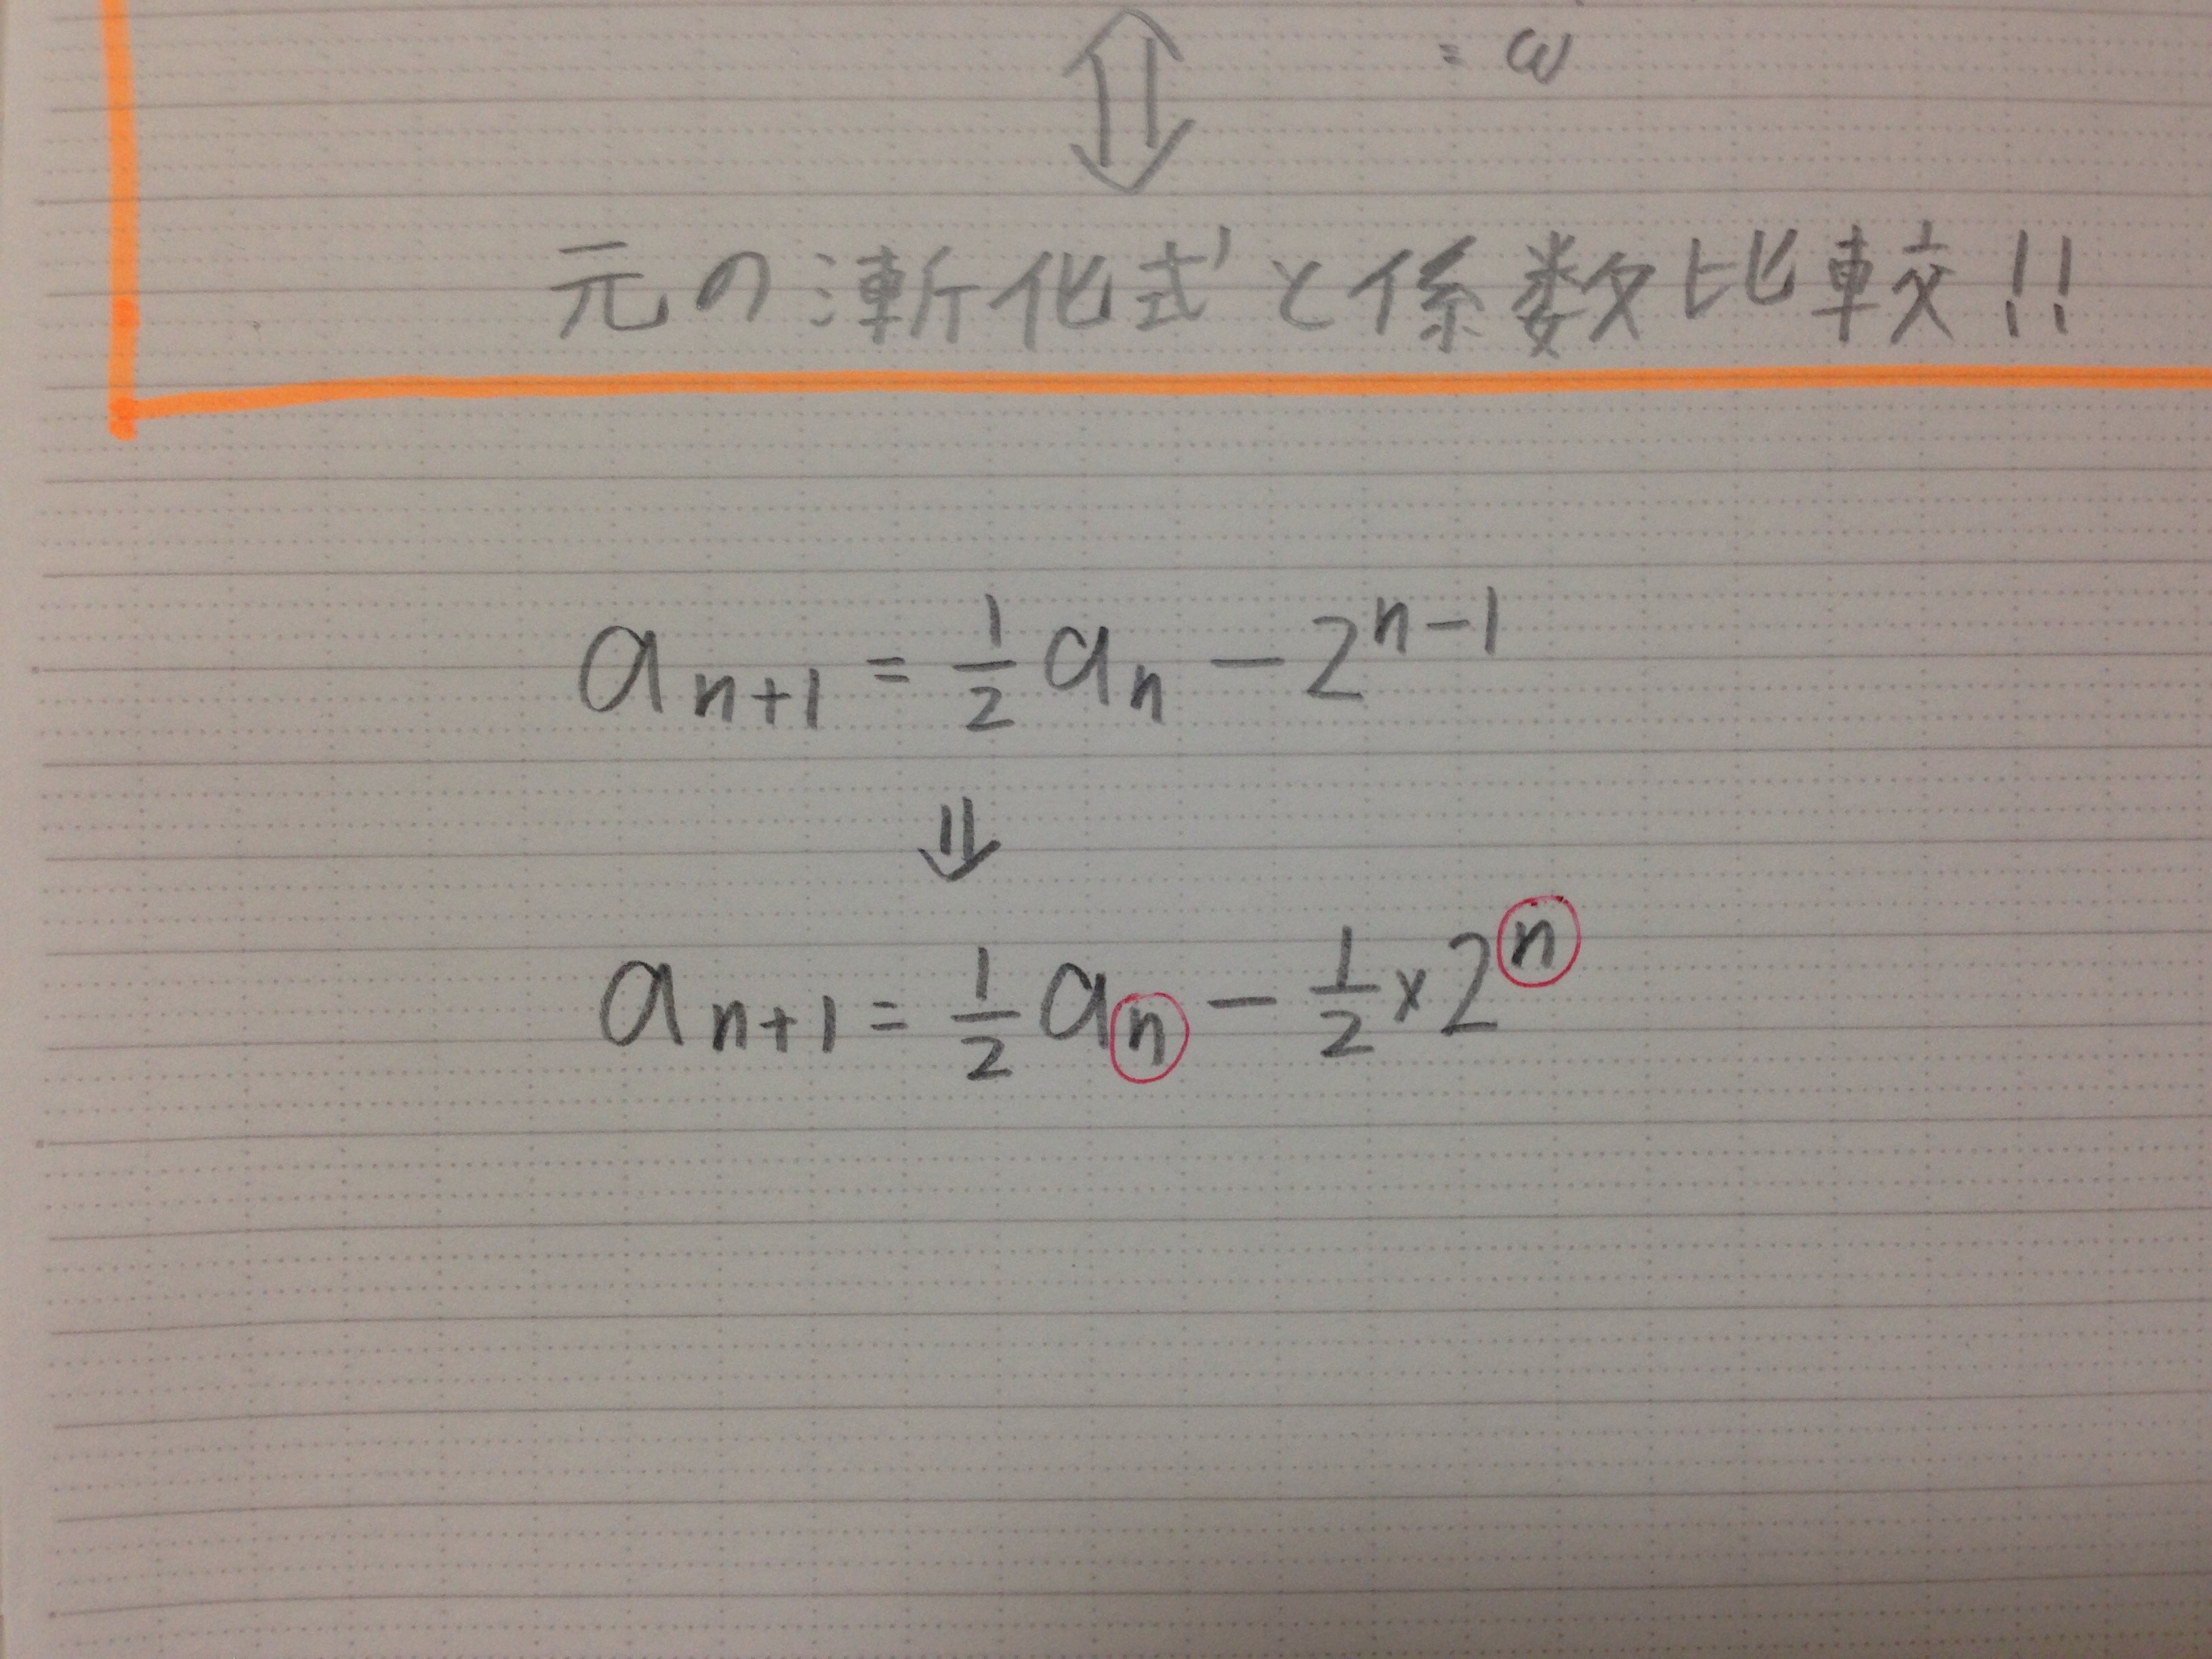 = ω
元の漸化式と係数比較!!
a_{n+1} = \frac{1}{2} a_n - 2^{n-1}
⇓
a_{n+1} = \frac{1}{2} a_n - \frac{1}{2} × 2^n